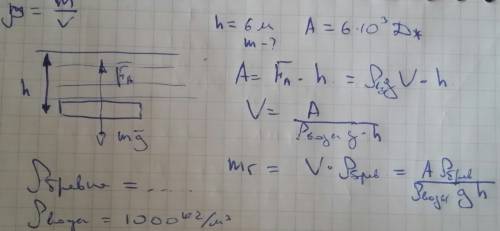 ρ = m/V
h = 6 м    A = 6·10³ Дж
m - ?
A = F̄A · h = ρвgV·h
F̄A
h
V = A/(ρводы g·h)
mḡ
mб = V·ρбрев = Aρбрев/(ρводы gh)
ρбревна = ....
ρводы = 1000 кг/м³